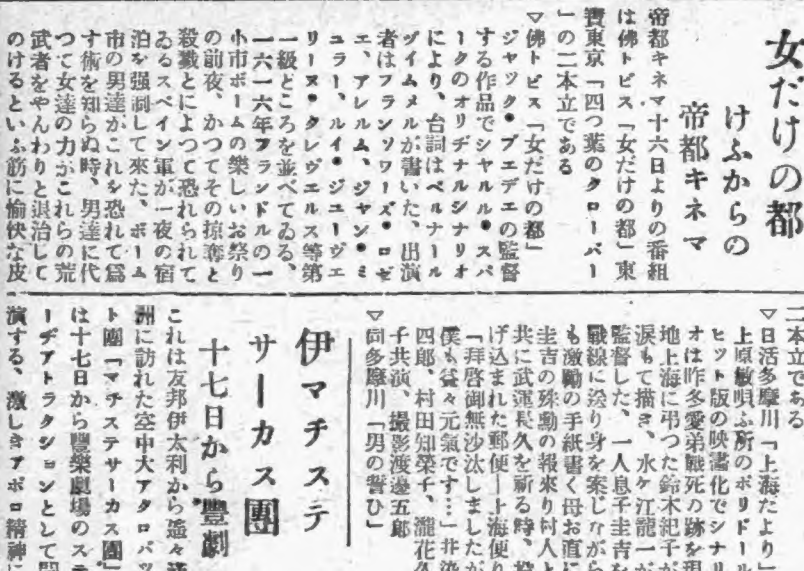 女だけの都
けふからの
帝都キネマ
帝都キネマ十六日よりの番組
は佛トビス「女だけの都」東
寶東京「四つ葉のクローバー
」の二本立である
▽佛トビス「女だけの都」
ジャック・フエデエの監督
する作品でシヤルル・スパ
ークのオリヂナルシナリオ
により、台詞はベルナール
ヅイムメルが書いた、出演
者はフランソワーズ・ロゼ
エ、アレルム、ジャン・ミ
ユラー、ルイ・ジユーヴエ
リーヌ・クレヴエルス等第
一級どころを並べてゐる、
一六一六年フランドルの一
小市ボームの樂しいお祭り
の前夜、かつてその掠奪と
殺戮とによつて恐れられて
ゐるスペイン軍が一夜の宿
泊を强制して來た、ボーム
市の男達がこれを恐れて爲
す術を知らぬ時、男達に代
つて女達の力がこれらの荒
武者をやんわりと退治して
のけるといふ筋に愉快な皮
二本立である
▽日活多摩川「上海だより」
上原敏唄ふ所のポリドール
ヒット版の映畫化でシナリ
オは昨冬愛弟戰死の跡を現
地上海に弔つた鈴木紀子が
涙もて描き、水ケ江龍一が
監督した、一人息子圭吉を
戰線に送り身を案じながら
も激勵の手紙書く母お直に
圭吉の殊勳の報來り村人と
共に武運長久を祈る時、投
げ込まれた郵便―上海便り
「拜啓御無沙汰しましたが
僕も益々元氣です…」井染
四郎、村田知榮子、瀧花久
子共演、撮影渡邊五郎
▽同多摩川「男の誓ひ」
伊マチステ
サーカス團
十七日から豐劇
これは友邦伊太利から遙々
洲に訪れた空中大アクロバツ
ト團「マチステサーカス團」
は十七日から豐樂劇場のステ
ーヂアトラクシヨンとして
演する、激しきアポロ精神に